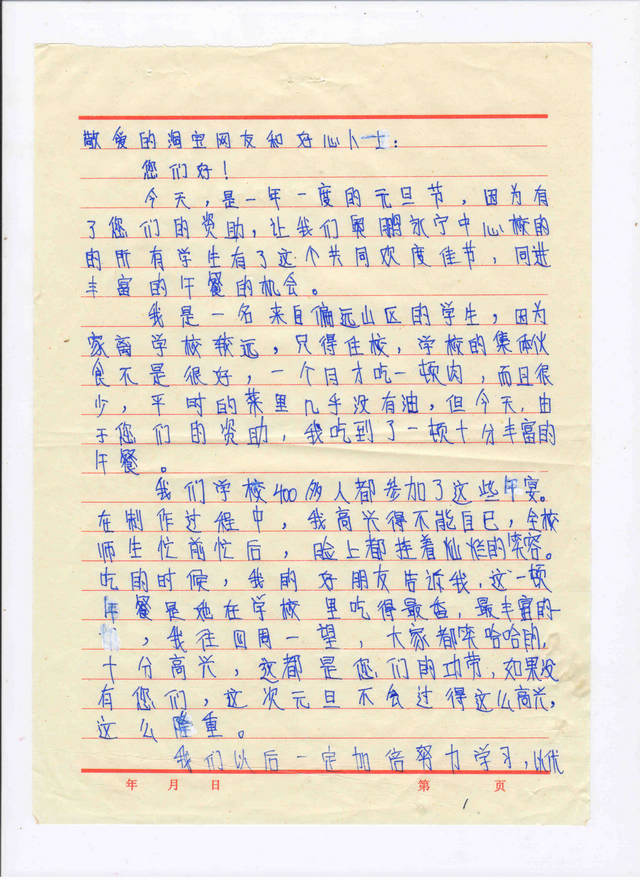 敬爱的淘宝网友和好心人士：
您们好！
今天，是一年一度的元旦节，因为有
了您们的资助，让我们 永宁中心校的
的所有学生有了这个共同欢度佳节，同进
丰富的午餐的机会。
我是一名来自偏远山区的学生，因为
家离学校较远，只得住校，学校的集体伙
食不是很好，一个月才吃一顿肉，而且很
少，平时的菜里几乎没有油，但今天，由
于您们的资助，我吃到了一顿十分丰富的
午餐。
我们学校400多人都参加了这些午宴。
在制作过程中，我高兴得不能自已，全校
师生忙前忙后，脸上都挂着灿烂的笑容。
吃的时候，我的好朋友告诉我，这一顿
午餐是她在学校里吃得最香，最丰富的
，我往四周一望，大家都笑哈哈的，
十分高兴，这都是您们的功劳，如果没
有您们，这次元旦不会过得这么高兴，
这么隆重。
我们以后一定加倍努力学习，以优
年 月 日 第 1 页